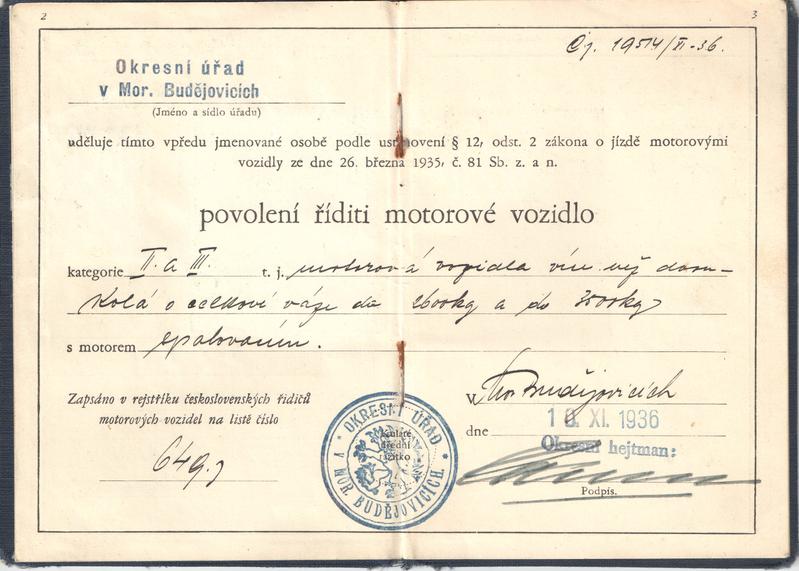 2
3
Čj. 19514/XI-36.
Okresní úřad
v Mor. Budějovicích
(Jméno a sídlo úřadu)
uděluje tímto vpředu jmenované osobě podle ustanovení § 12, odst. 2 zákona o jízdě motorovými
vozidly ze dne 26. března 1935, č. 81 Sb. z. a n.
povolení říditi motorové vozidlo
kategorie II. a III. t. j. motorová vozidla více než dvou-
kolá o celkové váze do 2600kg a do 3500kg
s motorem spalovacím.
Zapsáno v rejstříku československých řidičů
motorových vozidel na listě číslo
649.
V Mor. Budějovicích
dne 10. XI. 1936
Okresní hejtman:
Podpis.
OKRESNÍ ÚŘAD
V MOR. BUDĚJOVICÍCH
Kulaté
úřední
razítko